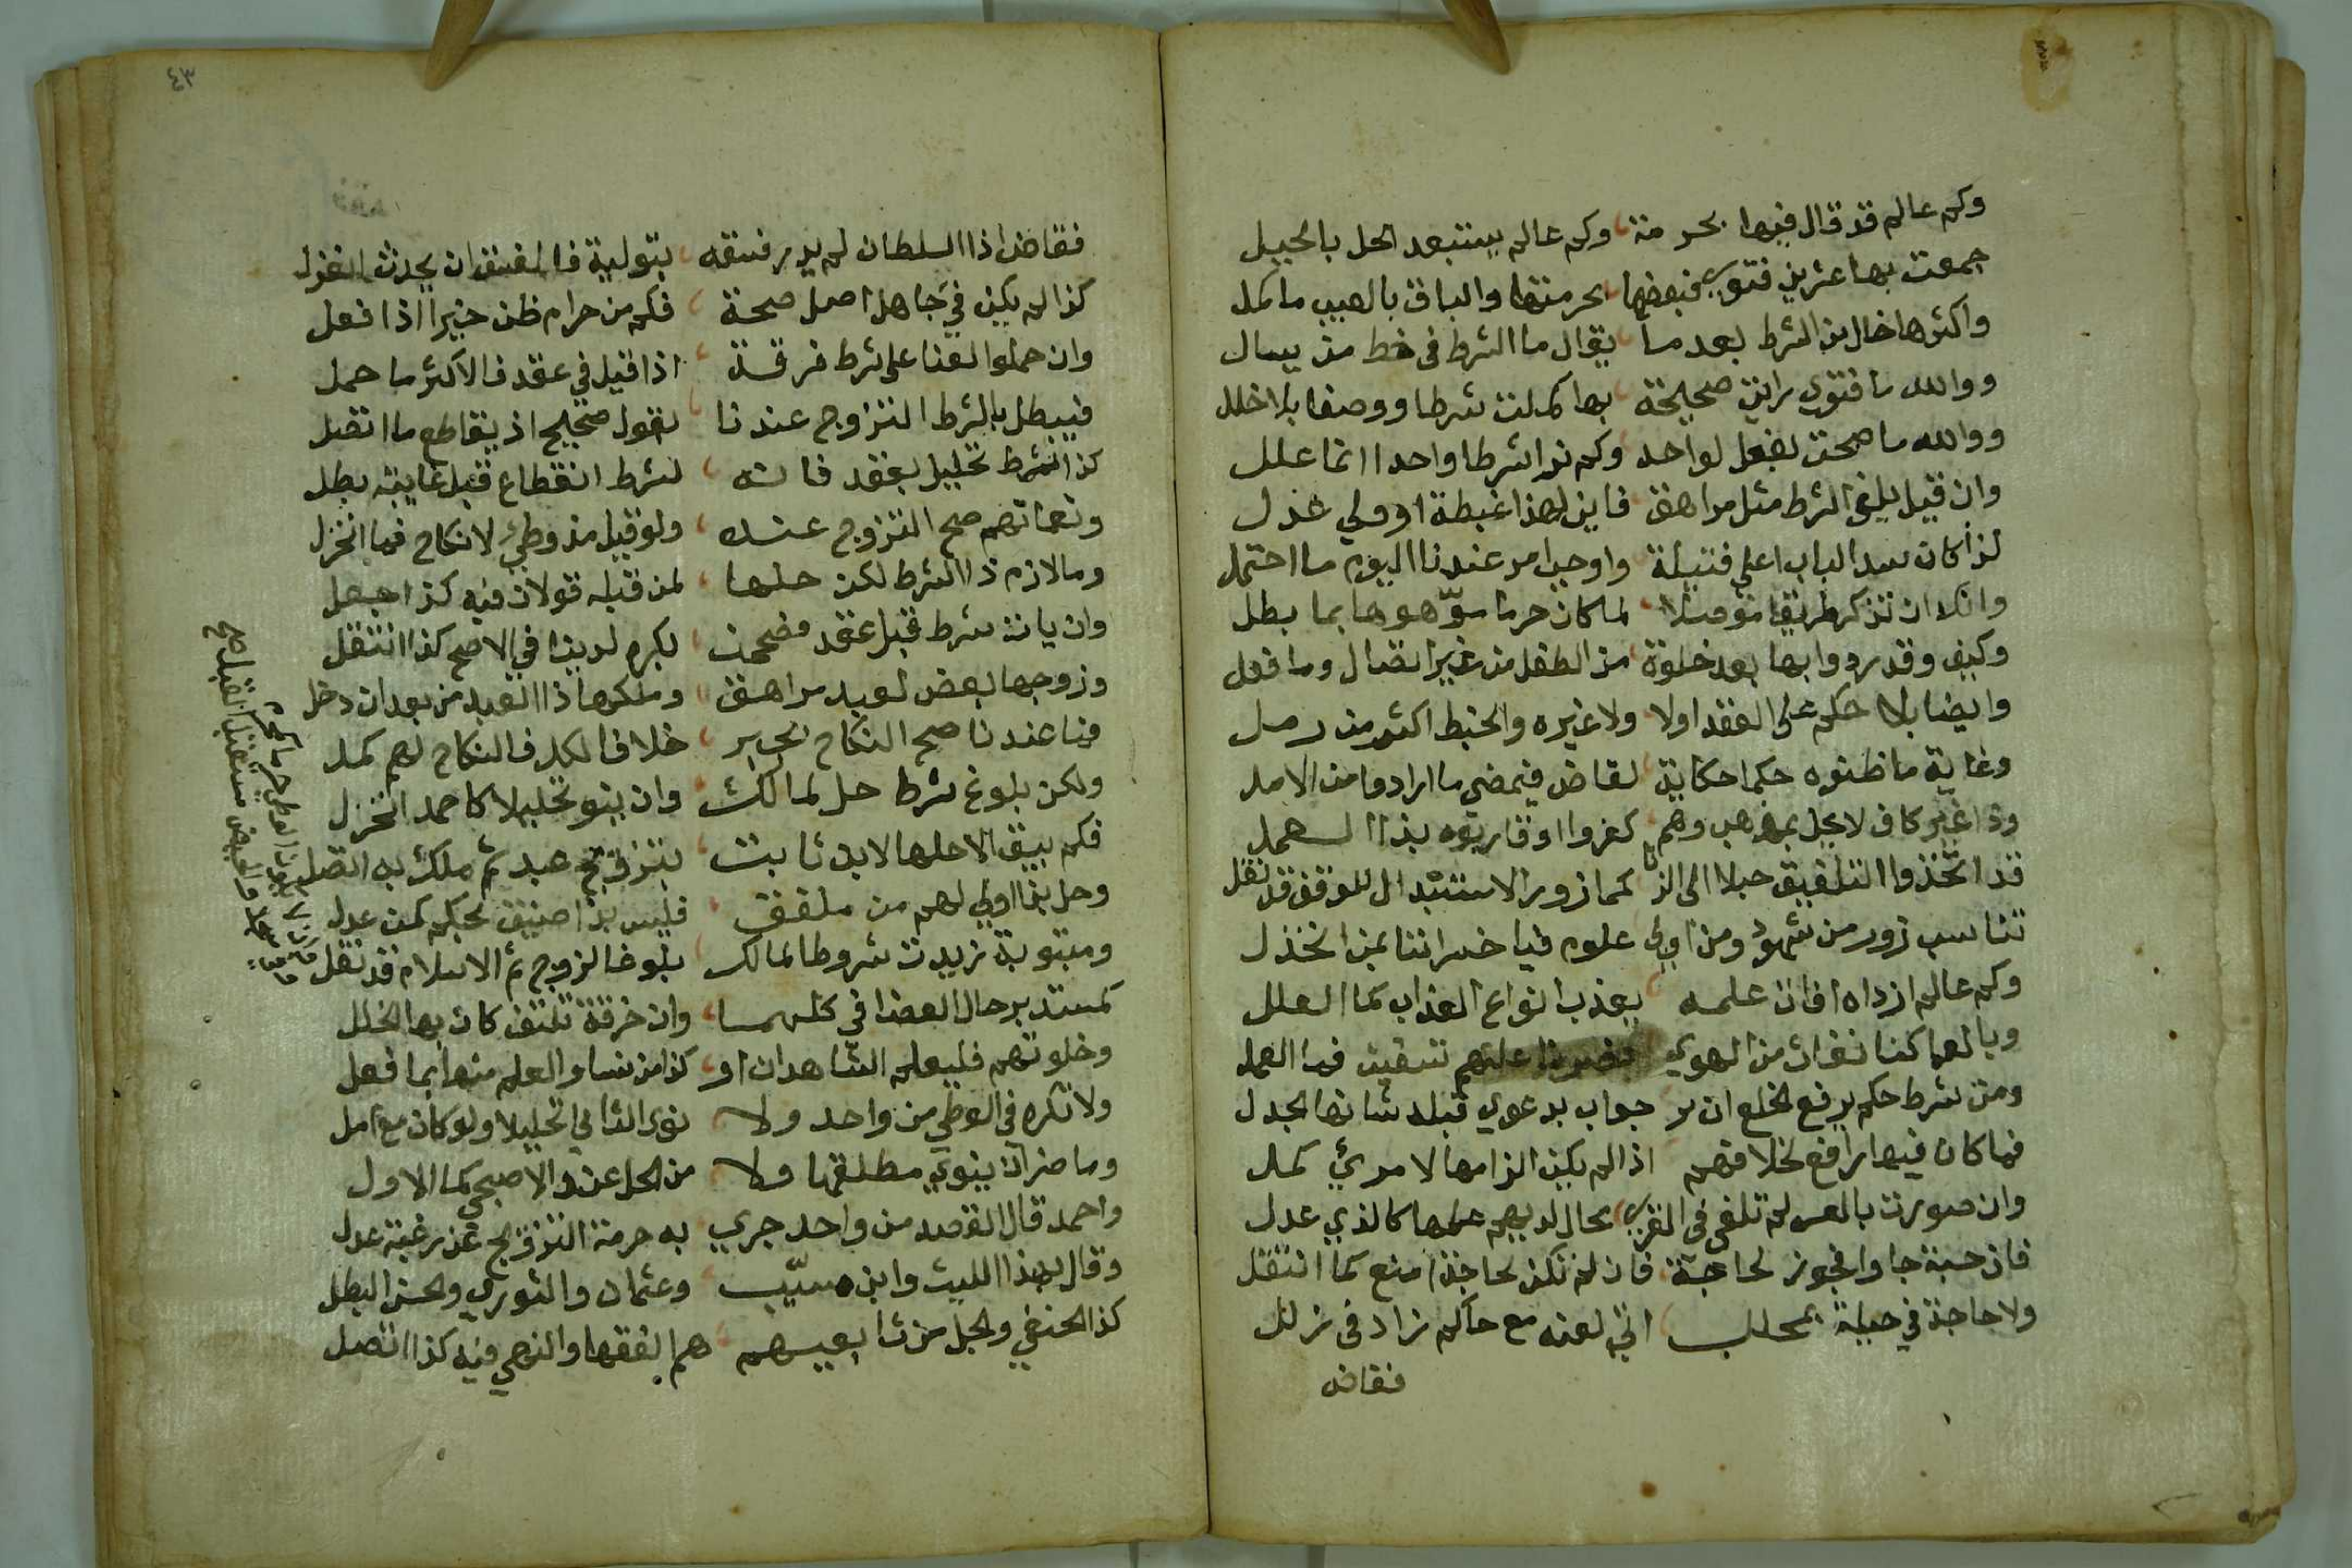 وكم عالم قد قال فيها بحرمة وكم عالم يستبعد الحل بالحيل
جمعت بها عشرين فتوى فبعضها بحرمتها والباق بالعيب ما كمل
واكثرها خال من الشرط بعد ما يقال ما الشرط في خط من يسال
ووالله ما فتوى راين صحيحة بها كملت شرطا ووصفا بلا خلل
ووالله ما صحت لفعل لواحد وكم نرا شرطا واحدا انما علل
وان قيل يلغى الشرط مثل مراهق فاين لهذا غبطة او ولي عدل
لذا كان سد الباب اعلى فتيلة واوجب امر عندنا اليوم ما احتمل
وانكلا ان تذكر طريقا موصلا لما كان حرما سوّهوها بما بطل
وكيف وقد ردوا بها بعد خلوة من الطفل من غير اتصال وما فعل
وايضا بلا حكم على العقد اولا ولا غيره والخبط اكثر من رمل
وغاية ما ظنوه حكما حكاية لقاض فيمضي ما ارادوا من الامل
وذا غير كاف لا يحل بمذهب وهم كفروا او قاربوه بذا العمل
قد اتخذوا التلفيق حبلا الى الزنا كما زور الاستبدال للوقف قد نقل
تناسب زور من شهود ومن اولي علوم فيا خسراننا بمن انخذل
وكم عالم ازداه افات علمه يعذب انواع العذاب كما العلل
وبالعما كفا نفرات من الهوى عليهم تسقيت فيدا العمل
ومن شرط حكم يرفع الخلع ان ير جواب بدعوى قبله شانها الجدل
فما كان فيها رافع لخلافهم اذا لم يكن الزامها لامرئ كمل
وان صورت بالعس لم تلغى في القرى بحال لديهم علمها كالذي عدل
فان حسبة جاوا فجوز لحاجة فان لم تكن لحاجة امنع كما انتقل
ولا حاجة في حيلة بمحلل اتى لعنه مع حاكم زاد في زلل
فقاض
٤٣
فقاض اذا السلطان لم يدر فسقه بتولية فالفسق ان يحدث انعزل
كذا لم يكن في جاهل اصل صحة فكم من حرام ظن خيرا اذا فعل
وان حملوا لفنا على شرط فرقة اذا قيل في عقد فالاكثر ما حمل
فيبطل بالشرط التزوج عندنا بقول صحيح اذ يقاطع ما اتصل
كذا لشرط تحليل بعقد فانه لشرط انقطاع قبل غايته بطل
ونعماتهم صح التزوج عنده ولو قيل مذ وطئ لا نكاح فما انخزل
وما لازم ذا الشرط لكن حلها لمن قبله قولان فيه كذا جعل
وان يات شرط قبل عقد فصححت بكره لدينا في الاصح كذا انتقل
وزوجها بعض لعبد مراهق وملكوها ذا العبد من بعد ان دخل
فيا عندنا صح النكاح بجبر خلافا لكل فالنكاح لهم كمل
ولكن بلوغ شرط حل لمالك وان ينو تحليلا كاحمد انخزل
فكم يبق الا حلها لابن ثابت بتزويج عبد ثم ملك به اتصل
وحل بنا اولى لهم من ملفق فليس بذا ضيق بحكم كمن عدل
ومبتوبة زيدت شروطا لمالك بلوغا لزوج ثم الاسلام قد نقل
كمستدبر حال العضا في كليهما وان خرقة تلتف كان بها الخلل
وخلوتهم فليعلم الشاهدان او كذا من نسا والعلم منها بما فعل
ولا تكره في الوطي من واحد ولا نوى الثاني تحليلا ولو كان مع امل
وما ضر ان ينوي مطلقها ولا من الحل عند الاصبحي كما الاول
واحمد قال القصد من واحد جرى به حرمة التزويج عن رغبة عدل
وقال بهذا الليث وابن مسيّب وعثمان والثوري والحسن البطل
كذا الحنفي والجل من تابعيهم هم الفقها والنهي فيه كذا اتصل